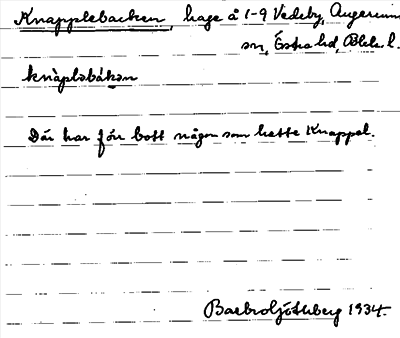 Knapplebacken, hage å 1-9 Vedeby, Augerums
sn, Östra hd, Blek. l.
knaplabakən
Där har förr bott någon som hette Knappel.
Barbro Göthberg 1934.